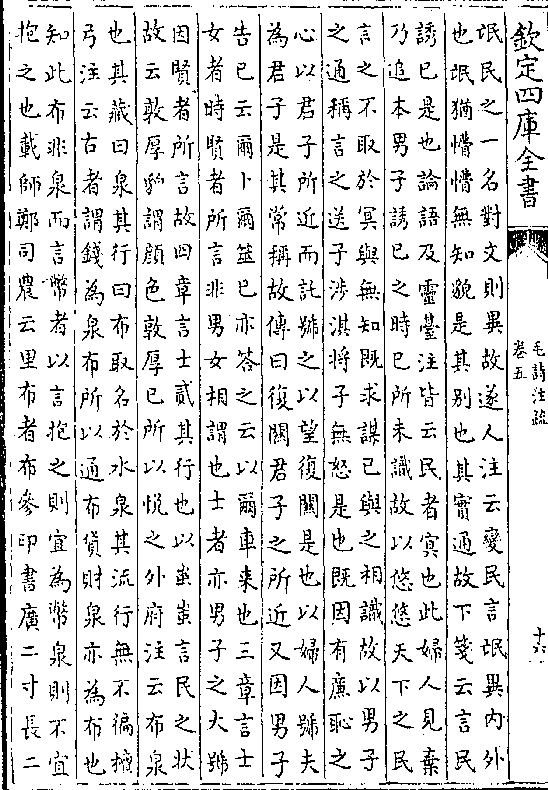 欽定四庫全書
毛詩注疏
卷五
十六
氓民之一名對文則異故遂人注云變民言氓異內外
也氓猶懵懵無知貌是其別也其實通故下箋云言民
誘己是也論語及靈臺注皆云民者㝠也此婦人見棄
乃追本男子誘己之時己所未識故以悠悠天下之民
言之不取於㝠與無知既求謀己與之相識故以男子
之通稱言之送子涉淇將子無怒是也既因有廉恥之
心以君子所近而託號之以望復關是也以婦人號夫
為君子是其常稱故傳曰復關君子之所近又因男子
告己云爾卜爾筮己亦答之云以爾車来也三章言士
女者時賢者所言非男女相謂也士者亦男子之大號
因賢者所言故四章言士貳其行也以蚩蚩言民之狀
故云敦厚貌謂顔色敦厚己所以悅之外府注云布泉
也其藏曰泉其行曰布取名於水泉其流行無不徧檀
弓注云古者謂錢為泉布所以通布貨財泉亦為布也
知此布非泉而言幣者以言抱之則宜為幣泉則不宜
抱之也載師鄭司農云里布者布參印書廣二寸長二